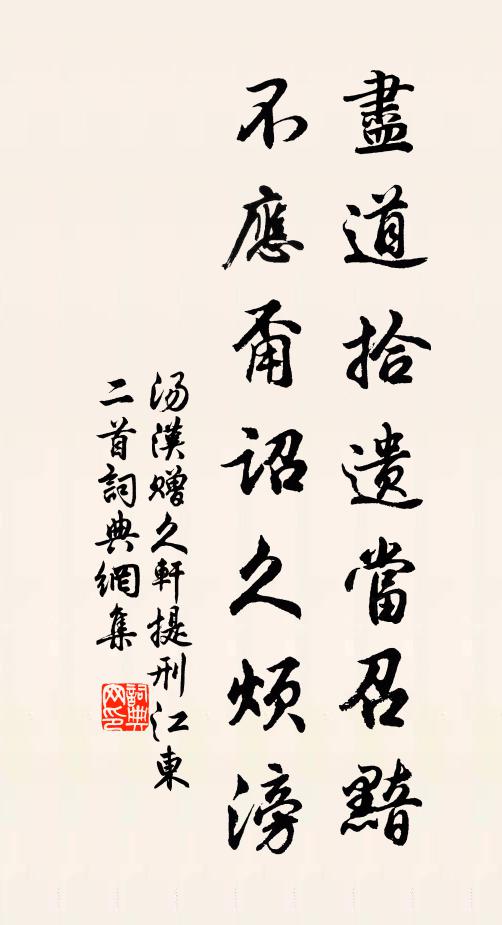 盡道拾遺當召黯
不應甭詔久煩滂
汤漢贈久軒提刑江東
二首詞典網集
詞典网印